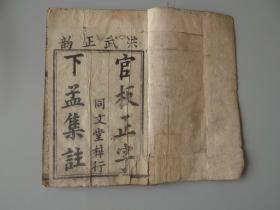 洪武正韵
官板正字
同文堂梓行
下孟集註